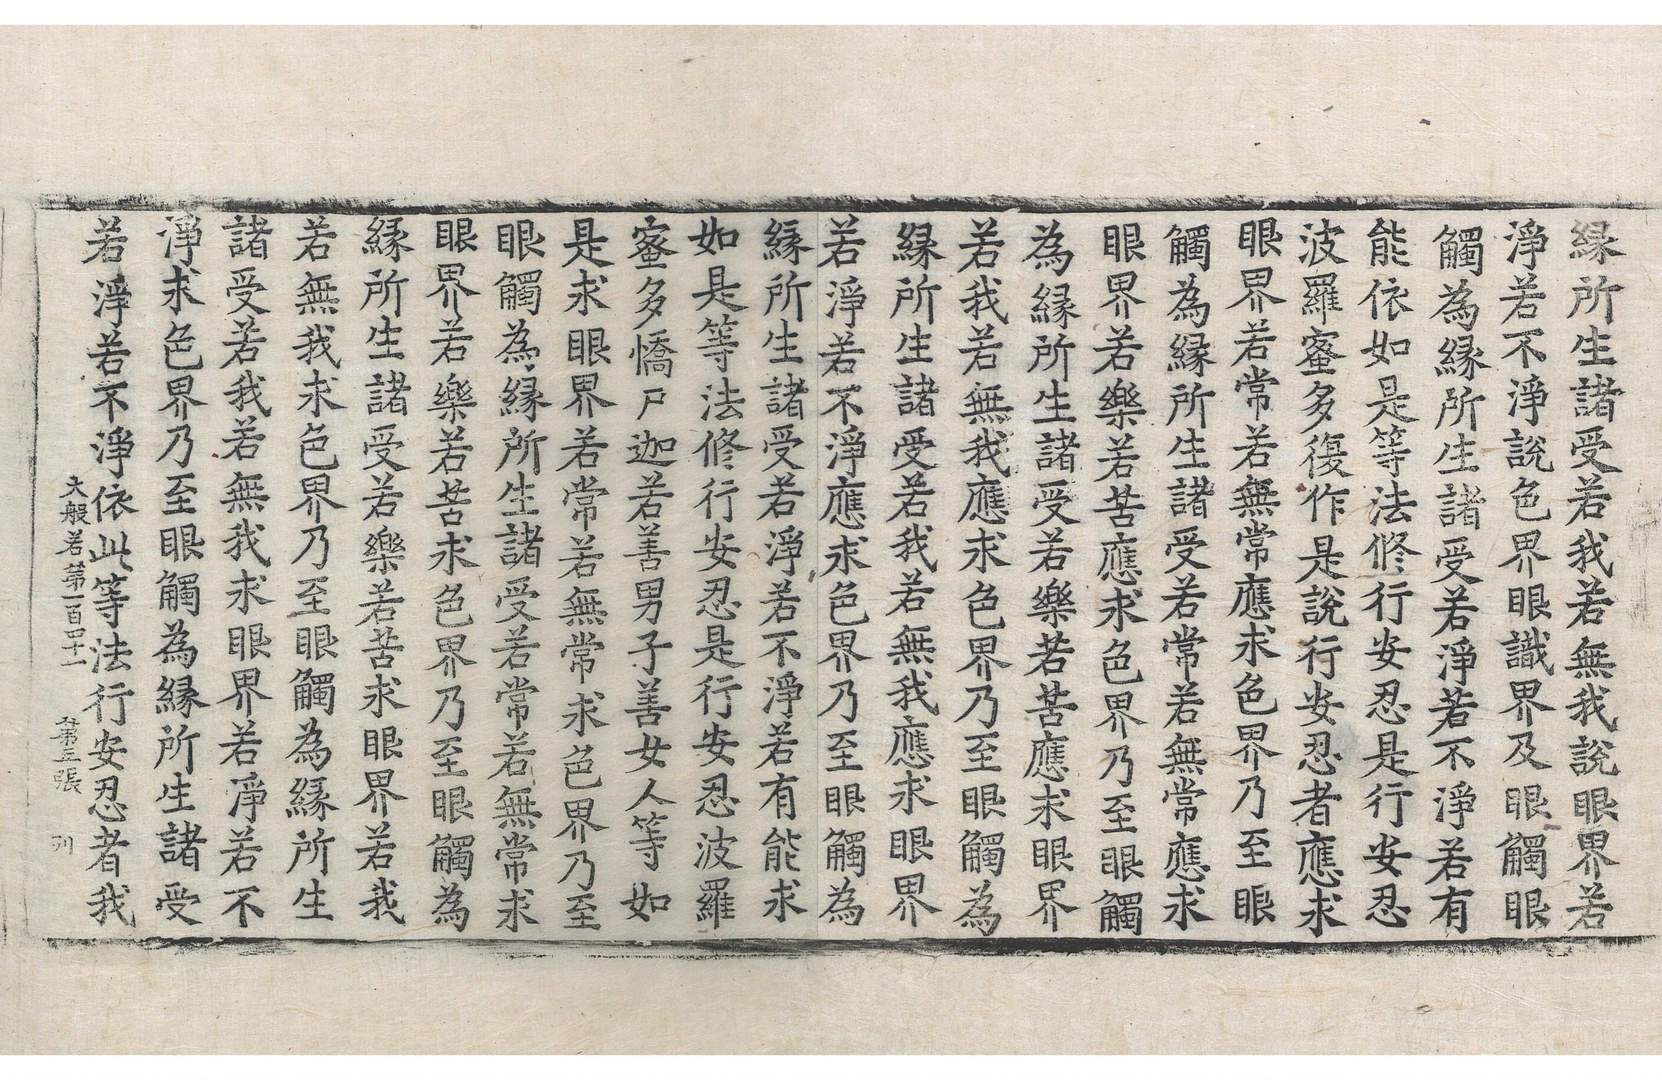 縁所生諸受若我若無我說眼界若
淨若不淨說色界眼識界及眼觸眼
觸為縁所生諸受若淨若不淨若有
能依如是等法修行安忍是行安忍
波羅蜜多復作是說行安忍者應求
眼界若常若無常應求色界乃至眼
觸為縁所生諸受若常若無常應求
眼界若樂若苦應求色界乃至眼觸
為縁所生諸受若樂若苦應求眼界
若我若無我應求色界乃至眼觸為
縁所生諸受若我若無我應求眼界
若淨若不淨應求色界乃至眼觸為
縁所生諸受若淨若不淨若有能求
如是等法修行安忍是行安忍波羅
蜜多憍尸迦若善男子善女人等如
是求眼界若常若無常求色界乃至
眼觸為縁所生諸受若常若無常求
眼界若樂若苦求色界乃至眼觸為
縁所生諸受若樂若苦求眼界若我
若無我求色界乃至眼觸為縁所生
諸受若我若無我求眼界若淨若不
淨求色界乃至眼觸為縁所生諸受
若淨若不淨依此等法行安忍者我
大般若第一百四十一 第三張 列